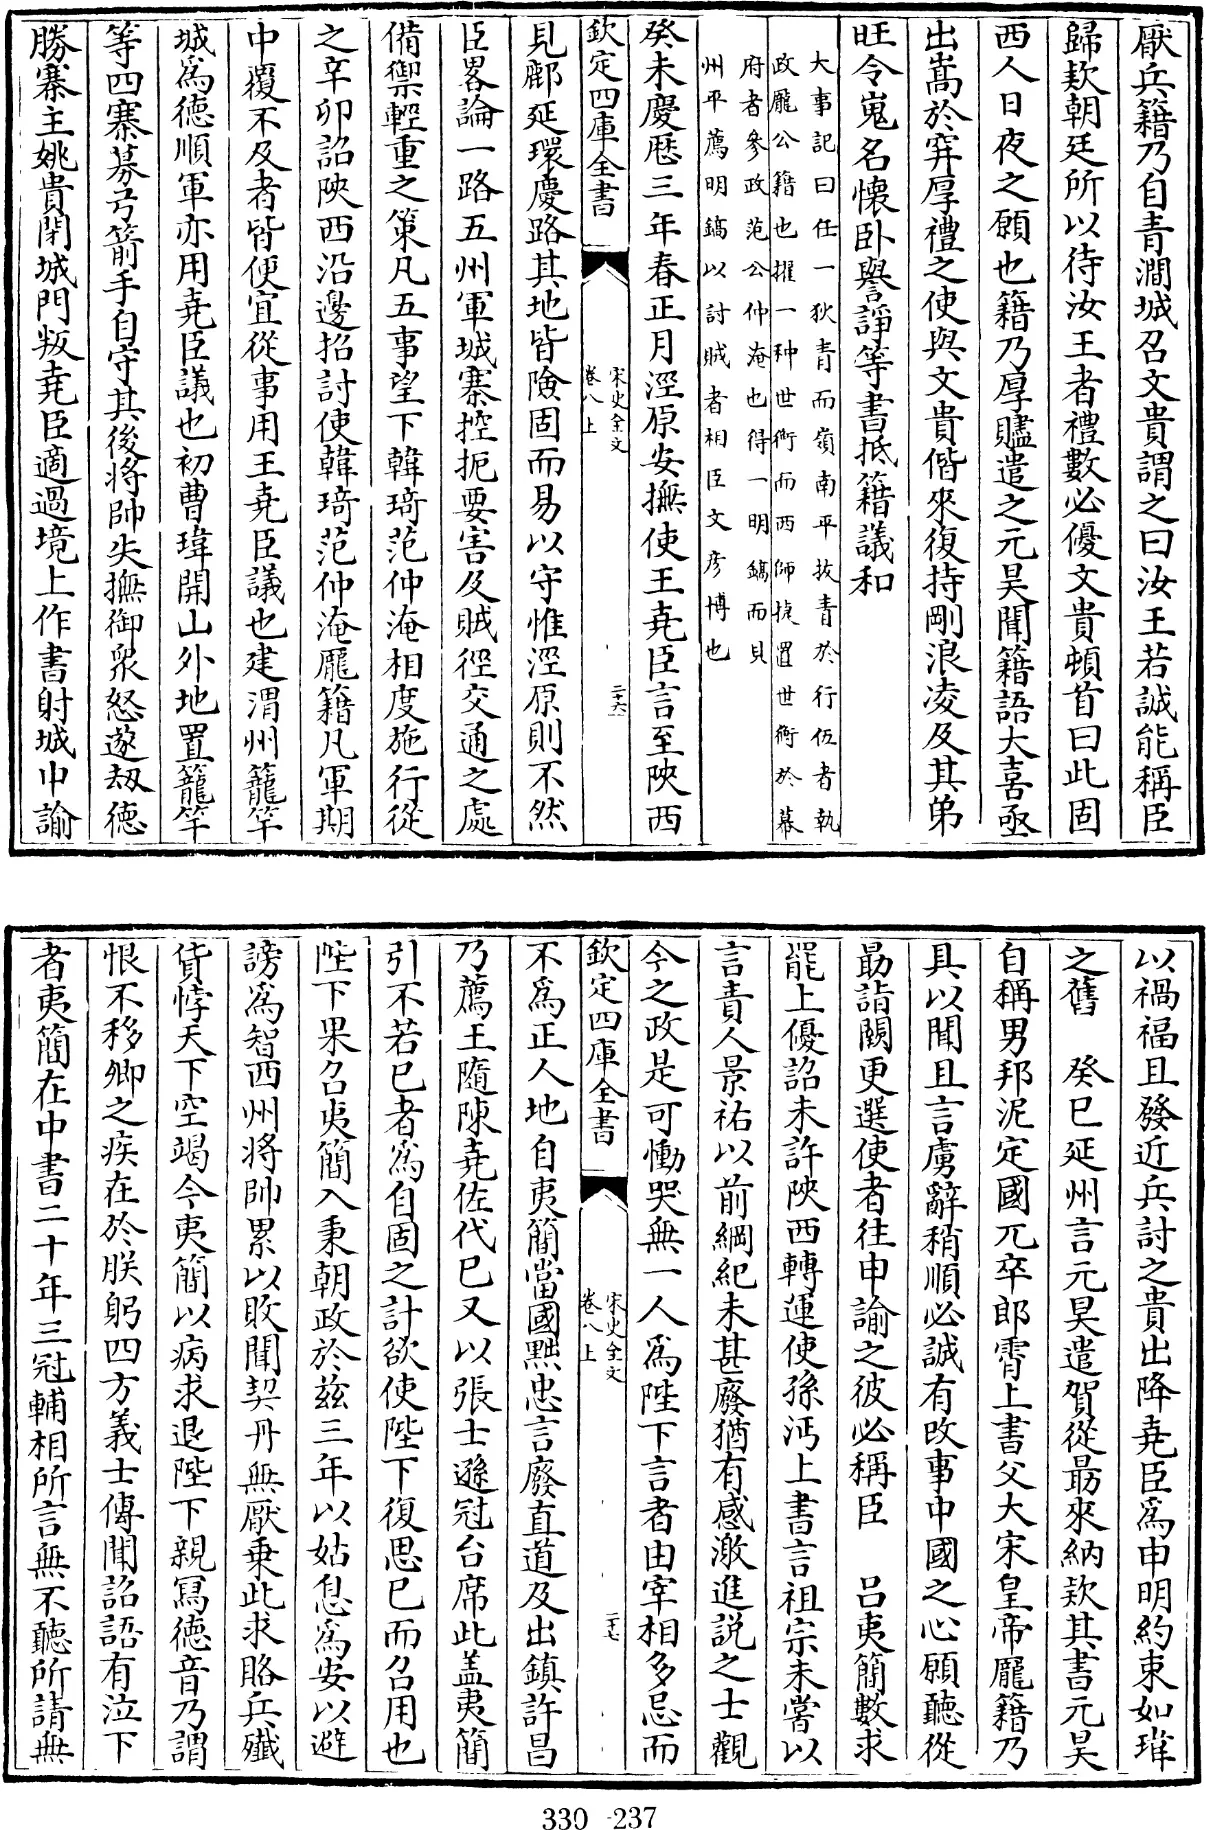 厭兵籍乃自青澗城召文貴謂之曰汝王若誠能稱臣
歸欵朝廷所以待汝王者禮數必優文貴頓首曰此固
西人日夜之願也籍乃厚贐遣之元昊聞籍語大喜亟
出嵩於穽厚禮之使與文貴偕來復持剛浪凌及其弟
旺令嵬名懷卧譽諍等書抵籍議和
大事記曰任一狄青而嶺南平拔青於行伍者執
政龎公籍也擢一种世衡而西師捷置世衡於幕
府者參政范公仲淹也得一明鎬而貝
州平薦明鎬以討賊者相臣文彦博也
癸未慶厯三年春正月涇原安撫使王尭臣言至陜西
欽定四庫全書
宋史全文
卷八上
二十六
見鄜延環慶路其地皆險固而易以守惟涇原則不然
臣畧論一路五州軍城寨控扼要害及賊徑交通之處
備禦輕重之策凡五事望下韓琦范仲淹相度施行從
之辛卯詔陜西沿邊招討使韓琦范仲淹龎籍凡軍期
中覆不及者皆便宜從事用王尭臣議也建渭州籠竿
城爲德順軍亦用尭臣議也初曹瑋開山外地置籠竿
等四寨募弓箭手自守其後將帥失撫御衆怒遂刼德
勝寨主姚貴閉城門叛尭臣適過境上作書射城中諭
以禍福且發近兵討之貴出降尭臣爲申明約束如瑋
之舊　癸巳延州言元昊遣賀從勗來納欵其書元昊
自稱男邦泥定國兀卒郎霄上書父大宋皇帝龎籍乃
具以聞且言虜辭稍順必誠有改事中國之心願聽從
勗詣闕更選使者往申諭之彼必稱臣　吕夷簡數求
罷上優詔未許陜西轉運使孫沔上書言祖宗未嘗以
言責人景祐以前綱紀未甚廢猶有感激進説之士觀
今之政是可慟哭無一人爲陛下言者由宰相多忌而
欽定四庫全書
宋史全文
卷八上
二十七
不爲正人地自夷簡當國黜忠言廢直道及出鎮許昌
乃薦王隨陳尭佐代已又以張士遜冠台席此盖夷簡
引不若已者爲自固之計欲使陛下復思已而召用也
陛下果召夷簡入秉朝政於兹三年以姑息爲安以避
謗爲智西州將帥累以敗聞契丹無厭乗此求賂兵殲
貨悖天下空竭今夷簡以病求退陛下親冩德音乃謂
恨不移卿之疾在於朕躬四方義士傳聞詔語有泣下
者夷簡在中書二十年三冠輔相所言無不聽所請無
330-237